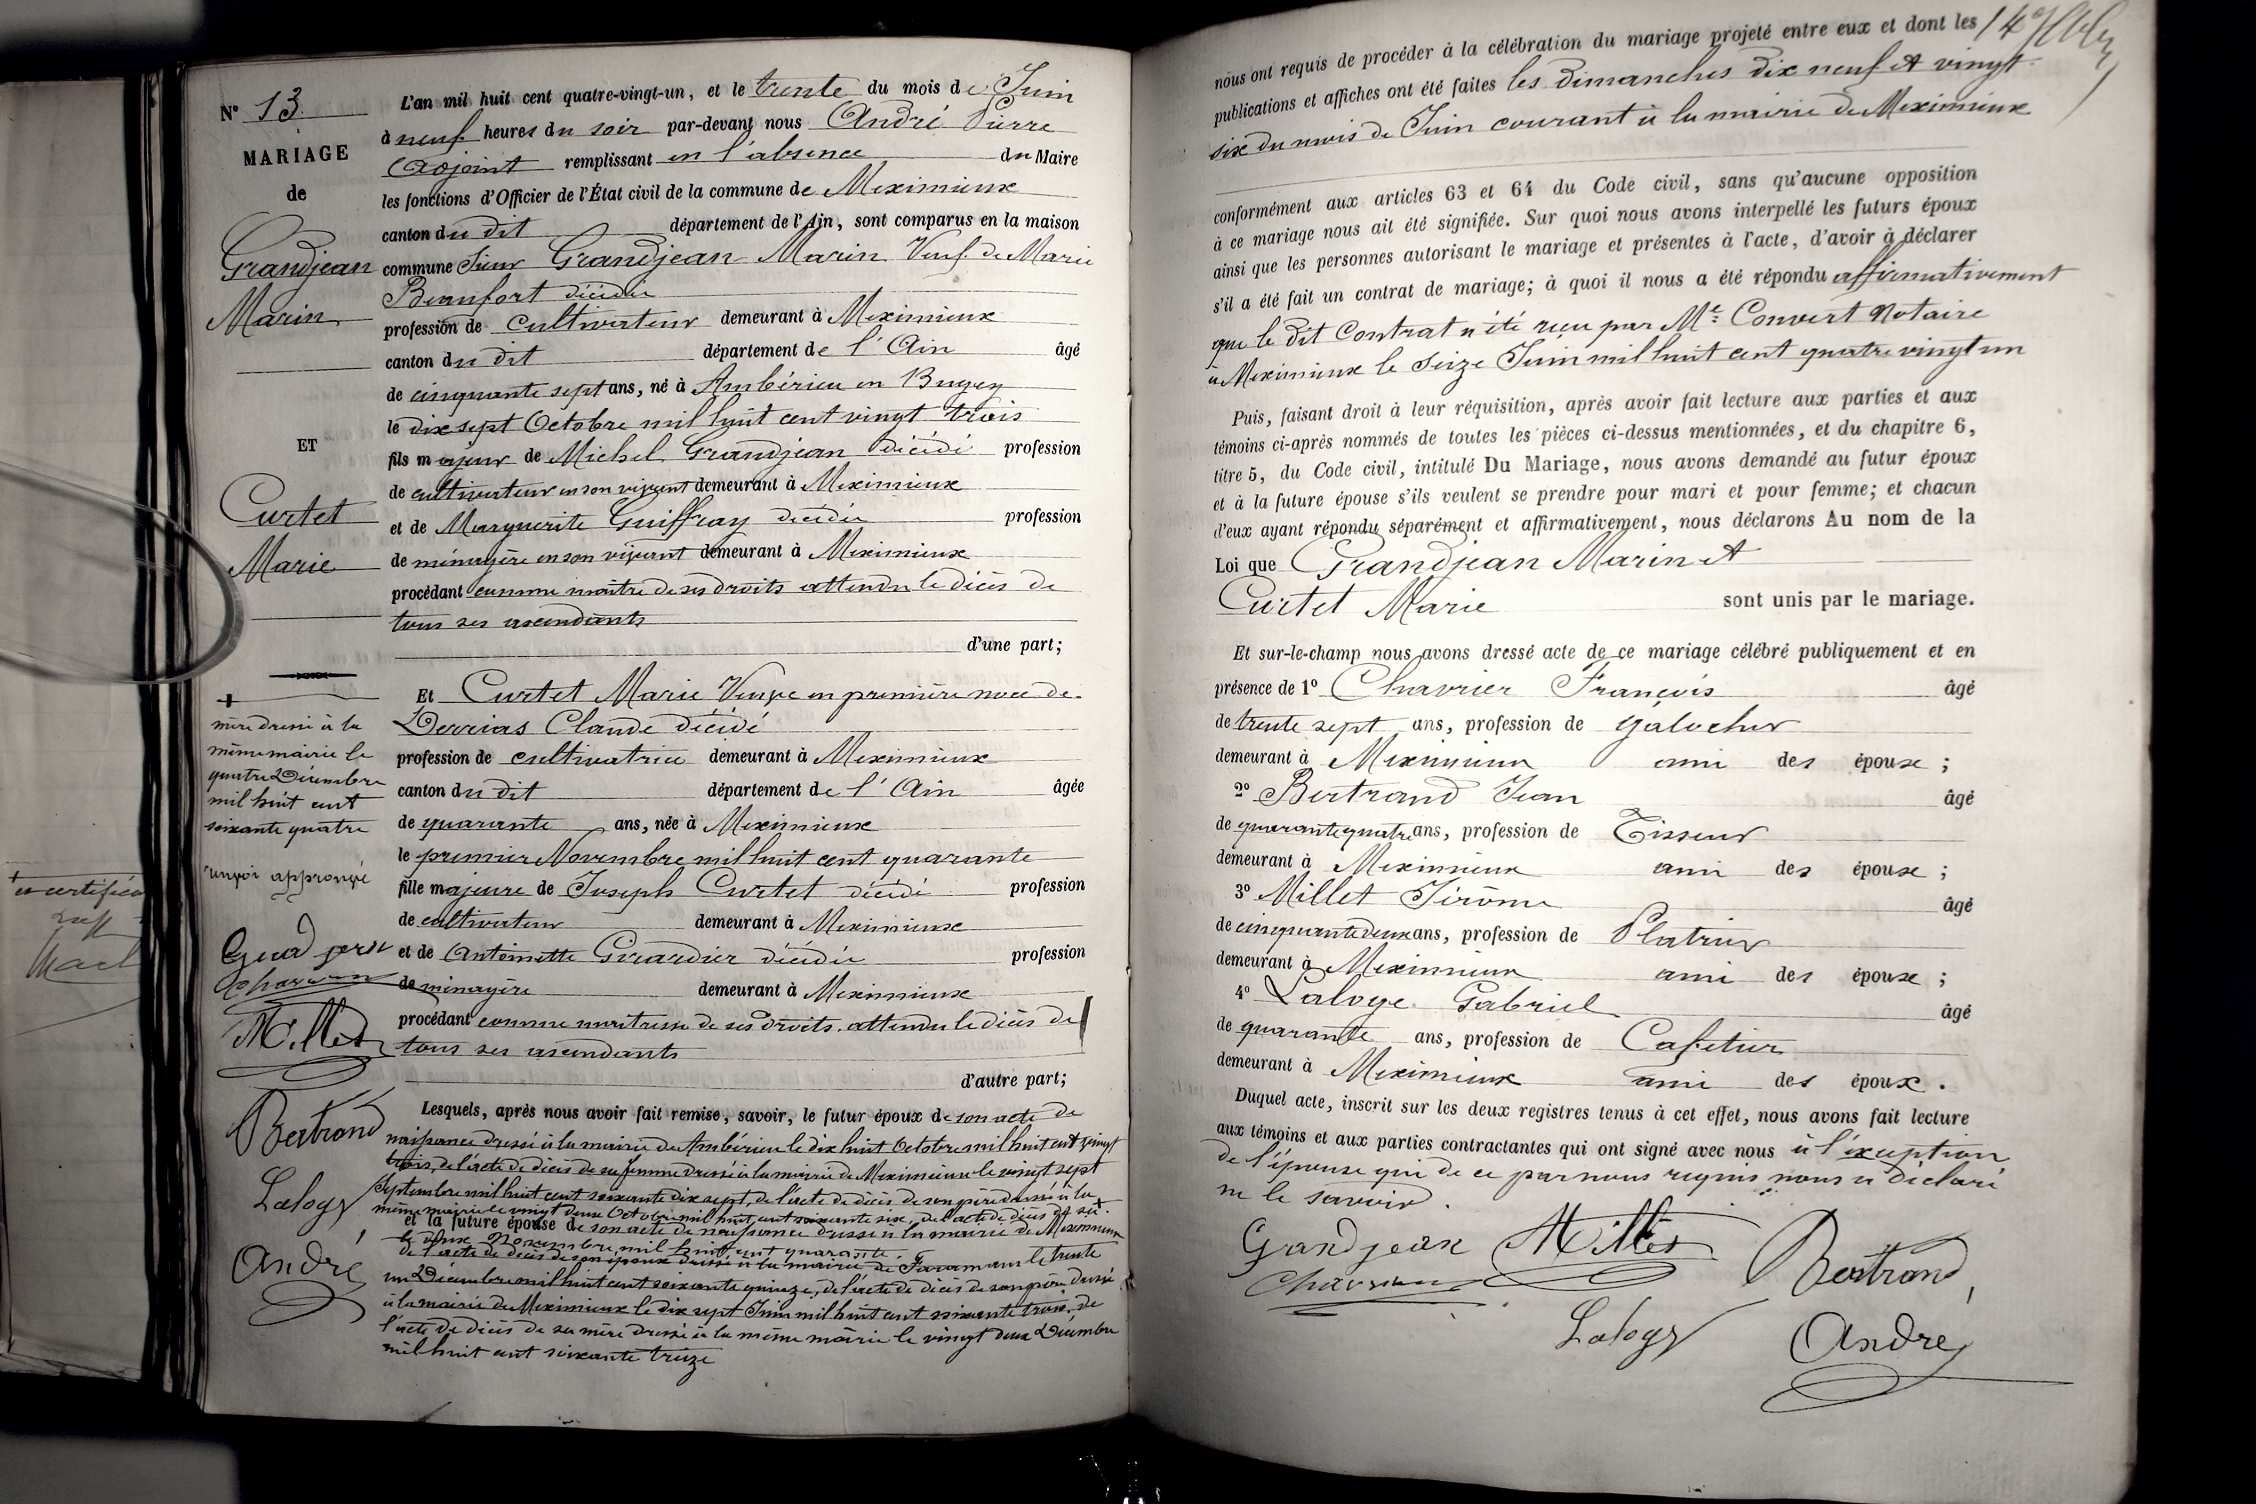 N° 13
MARIAGE
de
Grandjean
Marin
ET
Curtet
Marie
L'an mil huit cent quatre-vingt-un, et le trente du mois de Juin
à neuf heures du soir par-devant nous André Pierre
adjoint remplissant en l'absence du Maire
les fonctions d'Officier de l'État civil de la commune de Meximieux
canton du dit département de l'Ain, sont comparus en la maison
commune Sieur Grandjean Marin Veuf de Marie
Beaufort décédée
profession de cultivateur demeurant à Meximieux
canton du dit département de l'Ain âgé
de cinquante sept ans, né à Ambérieu en Bugey
le dix sept Octobre mil huit cent vingt trois
fils majeur de Michel Grandjean décédé profession
de cultivateur en son vivant demeurant à Meximieux
et de Marguerite Guiffray décédée profession
de ménagère en son vivant demeurant à Meximieux
procédant comme maître de ses droits attendu le décès de
tous ses ascendants
d'une part;
Et Curtet Marie Veuve en première noce de
Derrias Claude décédé
profession de cultivatrice demeurant à Meximieux
canton du dit département de l'Ain âgée
de quarante ans, née à Meximieux
le premier Novembre mil huit cent quarante
fille majeure de Joseph Curtet décédé profession
de cultivateur demeurant à Meximieux
et de Antoinette Girardier décédée profession
de ménagère demeurant à Meximieux
procédant comme maitresse de ses droits attendu le décès de
tous ses ascendants
d'autre part;
Lesquels, après nous avoir fait remise, savoir, le futur époux de son acte de
naissance dressé à la mairie de Ambérieu le dix huit Octobre mil huit cent vingt
trois, de l'acte de décès de sa femme dressé à la mairie de Meximieux le vingt sept
Septembre mil huit cent soixante dix sept, de l'acte de décès de son père dressé à la
même mairie le vingt deux Octobre mil huit cent soixante six, de l'acte de décès de sa +
et la future épouse de son acte de naissance dressé à la mairie de Meximieux
le deux Novembre mil huit cent quarante.
de l'acte de décès de son époux dressé à la mairie de Faramans le trente
un Décembre mil huit cent soixante quinze, de l'acte de décès de son père dressé
à la mairie de Meximieux le dix sept Juin mil huit cent soixante trois, de
l'acte de décès de sa mère dressé à la même mairie le vingt deux Décembre
mil huit cent soixante treize
+
mère dressé à la
même mairie le
quatre Décembre
mil huit cent
soixante quatre
renvoi approuvé
Grandjean
Charrier
Millet
Bertrand
Laloge
André
nous ont requis de procéder à la célébration du mariage projeté entre eux et dont les
publications et affiches ont été faites les Dimanches dix neuf et vingt
six du mois de Juin courant à la mairie de Meximieux
conformément aux articles 63 et 64 du Code civil, sans qu'aucune opposition
à ce mariage nous ait été signifiée. Sur quoi nous avons interpellé les futurs époux
ainsi que les personnes autorisant le mariage et présentes à l'acte, d'avoir à déclarer
s'il a été fait un contrat de mariage; à quoi il nous a été répondu affirmativement
que le dit contrat a été reçu par Me Convert Notaire
à Meximieux le Seize Juin mil huit cent quatre vingt un
Puis, faisant droit à leur réquisition, après avoir fait lecture aux parties et aux
témoins ci-après nommés de toutes les pièces ci-dessus mentionnées, et du chapitre 6,
titre 5, du Code civil, intitulé Du Mariage, nous avons demandé au futur époux
et à la future épouse s'ils veulent se prendre pour mari et pour femme; et chacun
d'eux ayant répondu séparément et affirmativement, nous déclarons Au nom de la
Loi que Grandjean Marin et
Curtet Marie sont unis par le mariage.
Et sur-le-champ nous avons dressé acte de ce mariage célébré publiquement et en
présence de 1° Chavrier François âgé
de trente sept ans, profession de galocher
demeurant à Meximieux ami des époux;
2° Bertrand Jean âgé
de quarante quatre ans, profession de Tisseur
demeurant à Meximieux ami des époux;
3° Millet Jérôme âgé
de cinquante deux ans, profession de Platrier
demeurant à Meximieux ami des époux;
4° Laloge Gabriel âgé
de quarante ans, profession de Cafetier
demeurant à Meximieux ami des époux.
Duquel acte, inscrit sur les deux registres tenus à cet effet, nous avons fait lecture
aux témoins et aux parties contractantes qui ont signé avec nous à l'exception
de l'épouse qui de ce par nous requis nous a déclaré
ne le savoir.
Grandjean Millet Bertrand
Chavrier
Laloge André